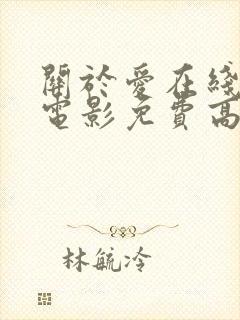 關於愛在綫
電影免費高
林毓冷